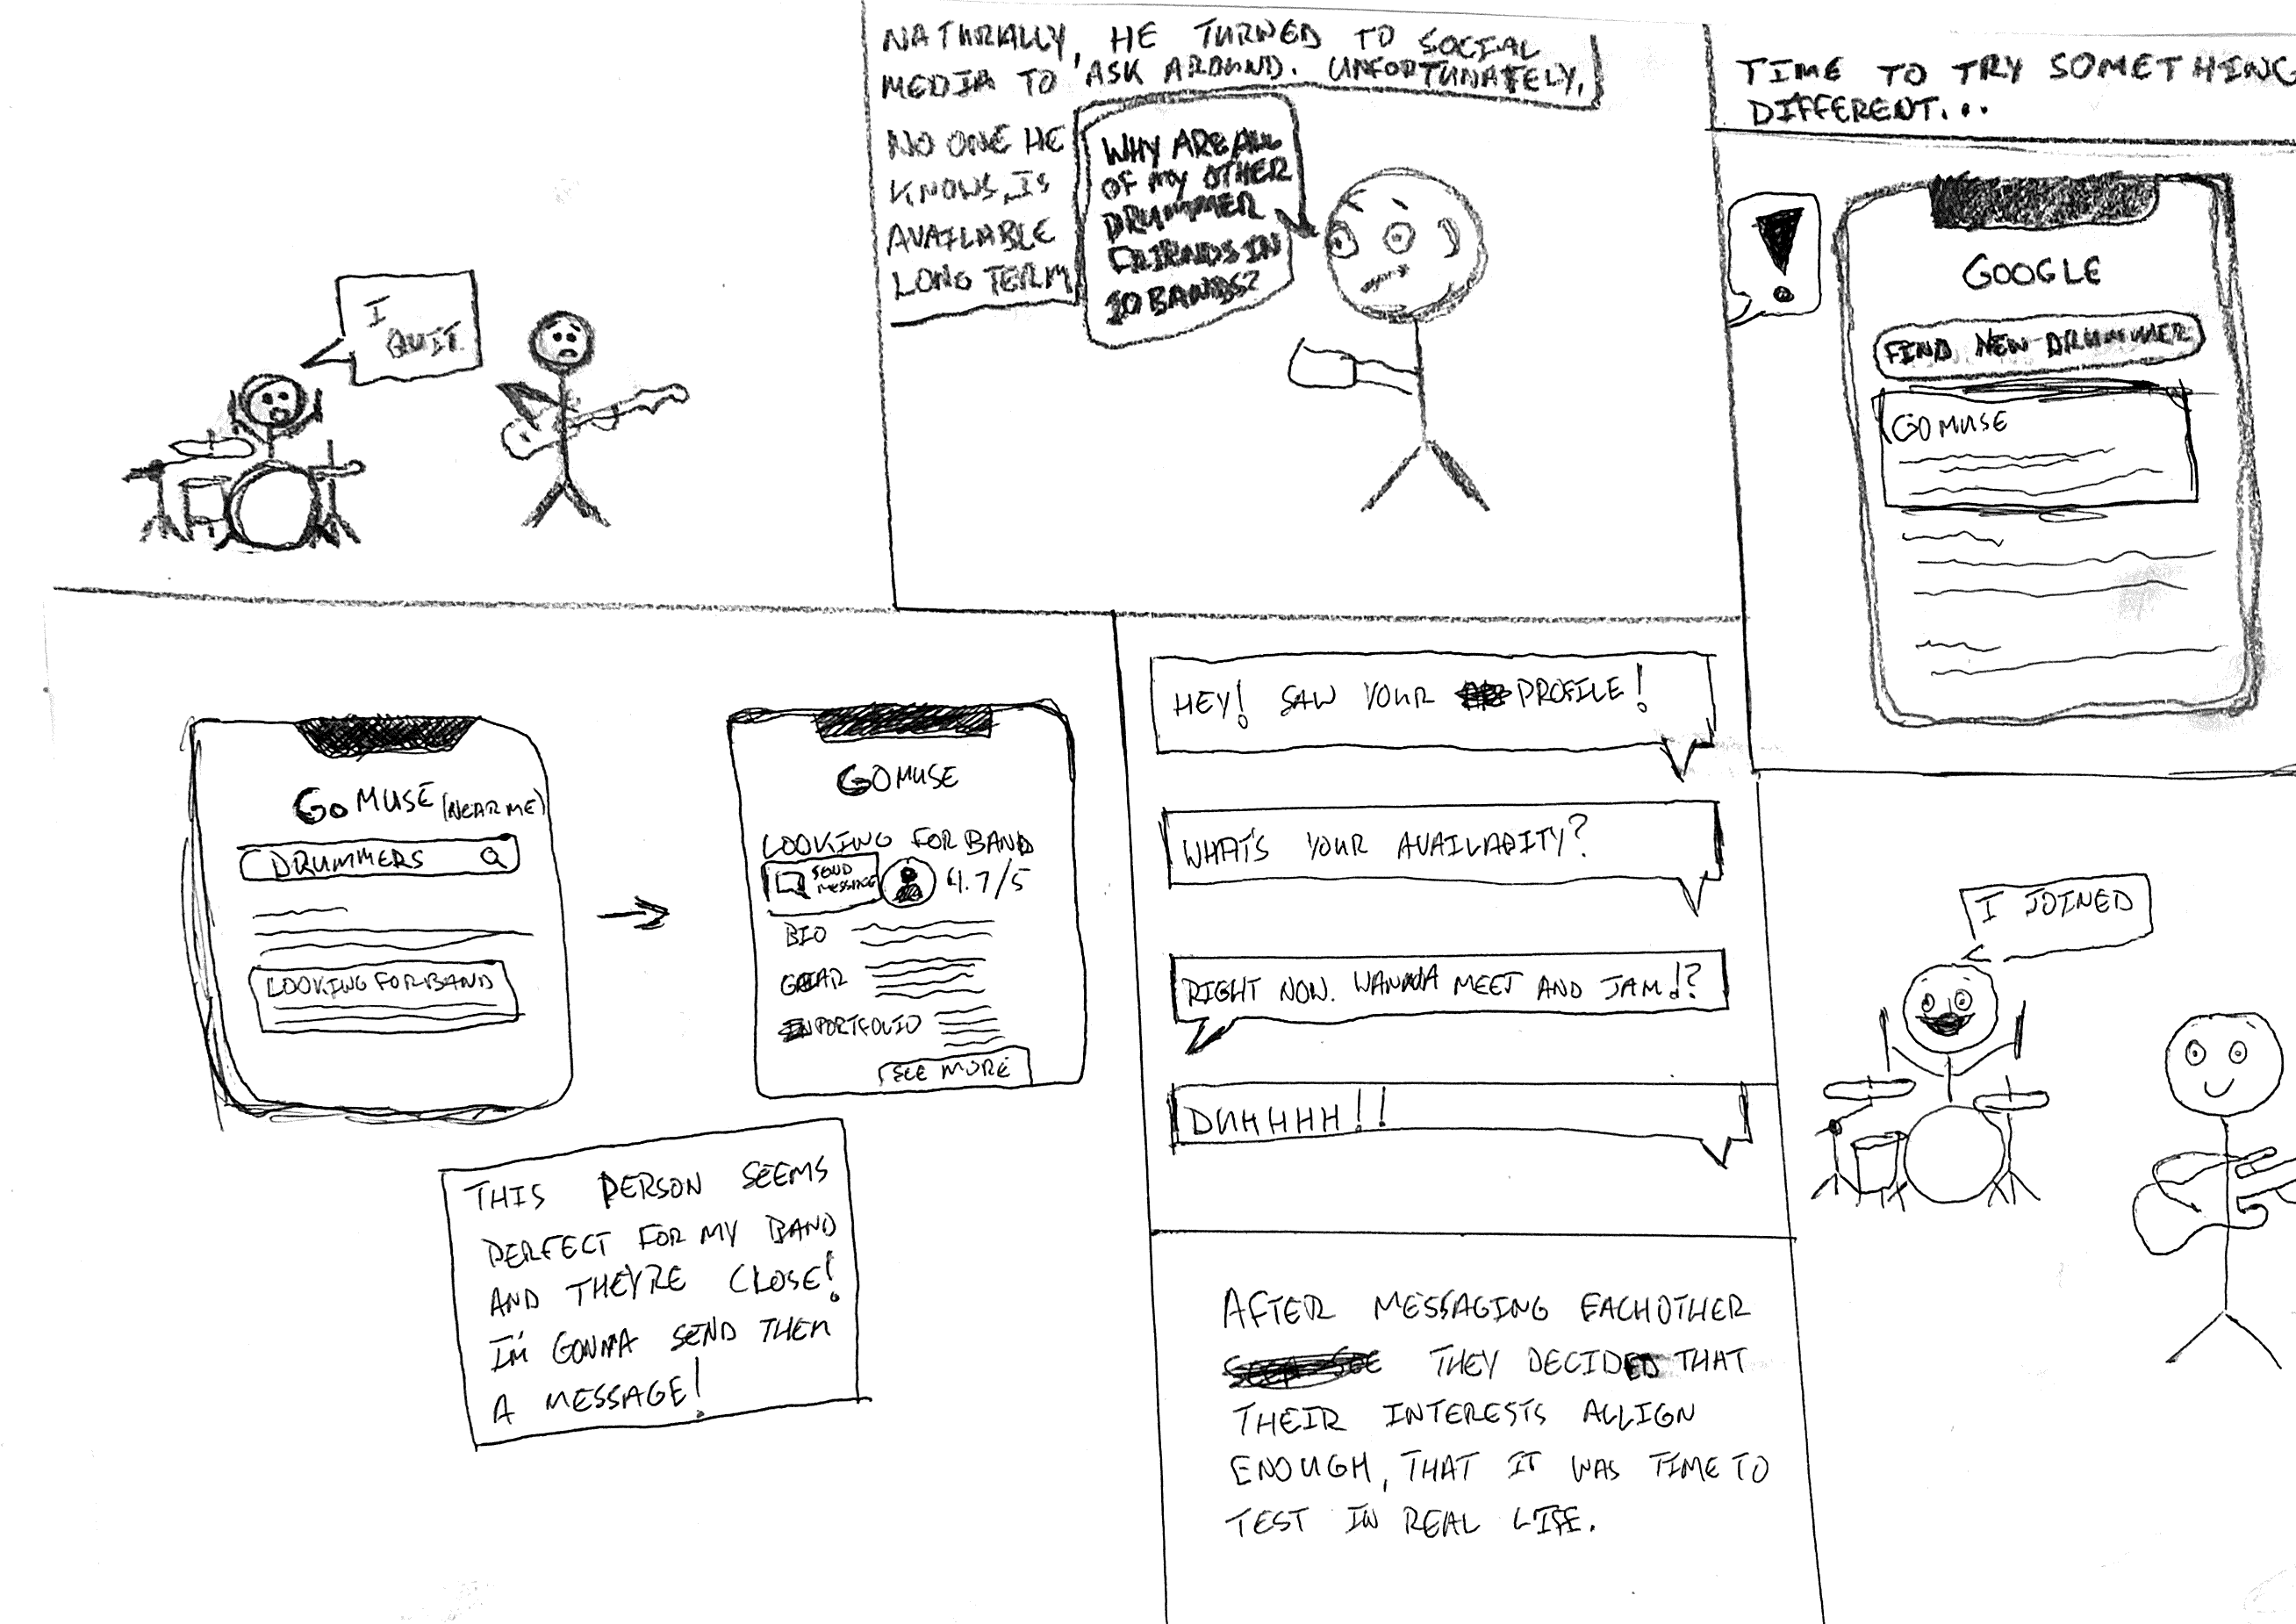 I
QUIT
NATURALLY, HE TURNED TO SOCIAL
MEDIA TO ASK AROUND. UNFORTUNATELY,
NO ONE HE
KNOWS IS
AVAILABLE
LONG TERM
WHY ARE ALL
OF MY OTHER
DRUMMER
FRIENDS IN
10 BANDS?
TIME TO TRY SOMETHING
DIFFERENT...
!
GOOGLE
FIND NEW DRUMMER
GOMUSE
GOMUSE (NEAR ME)
DRUMMERS
LOOKING FOR BAND
GOMUSE
LOOKING FOR BAND
SEND
MESSAGE
4.7/5
BIO
GEAR
PORTFOLIO
SEE MORE
THIS PERSON SEEMS
PERFECT FOR MY BAND
AND THEY'RE CLOSE!
I'M GONNA SEND THEM
A MESSAGE!
HEY! SAW YOUR PROFILE!
WHAT'S YOUR AVAILABITY?
RIGHT NOW. WANNA MEET AND JAM!?
DUHHHH!!
AFTER MESSAGING EACHOTHER
THEY DECIDED THAT
THEIR INTERESTS ALLIGN
ENOUGH, THAT IT WAS TIME TO
TEST IN REAL LIFE.
I JOINED